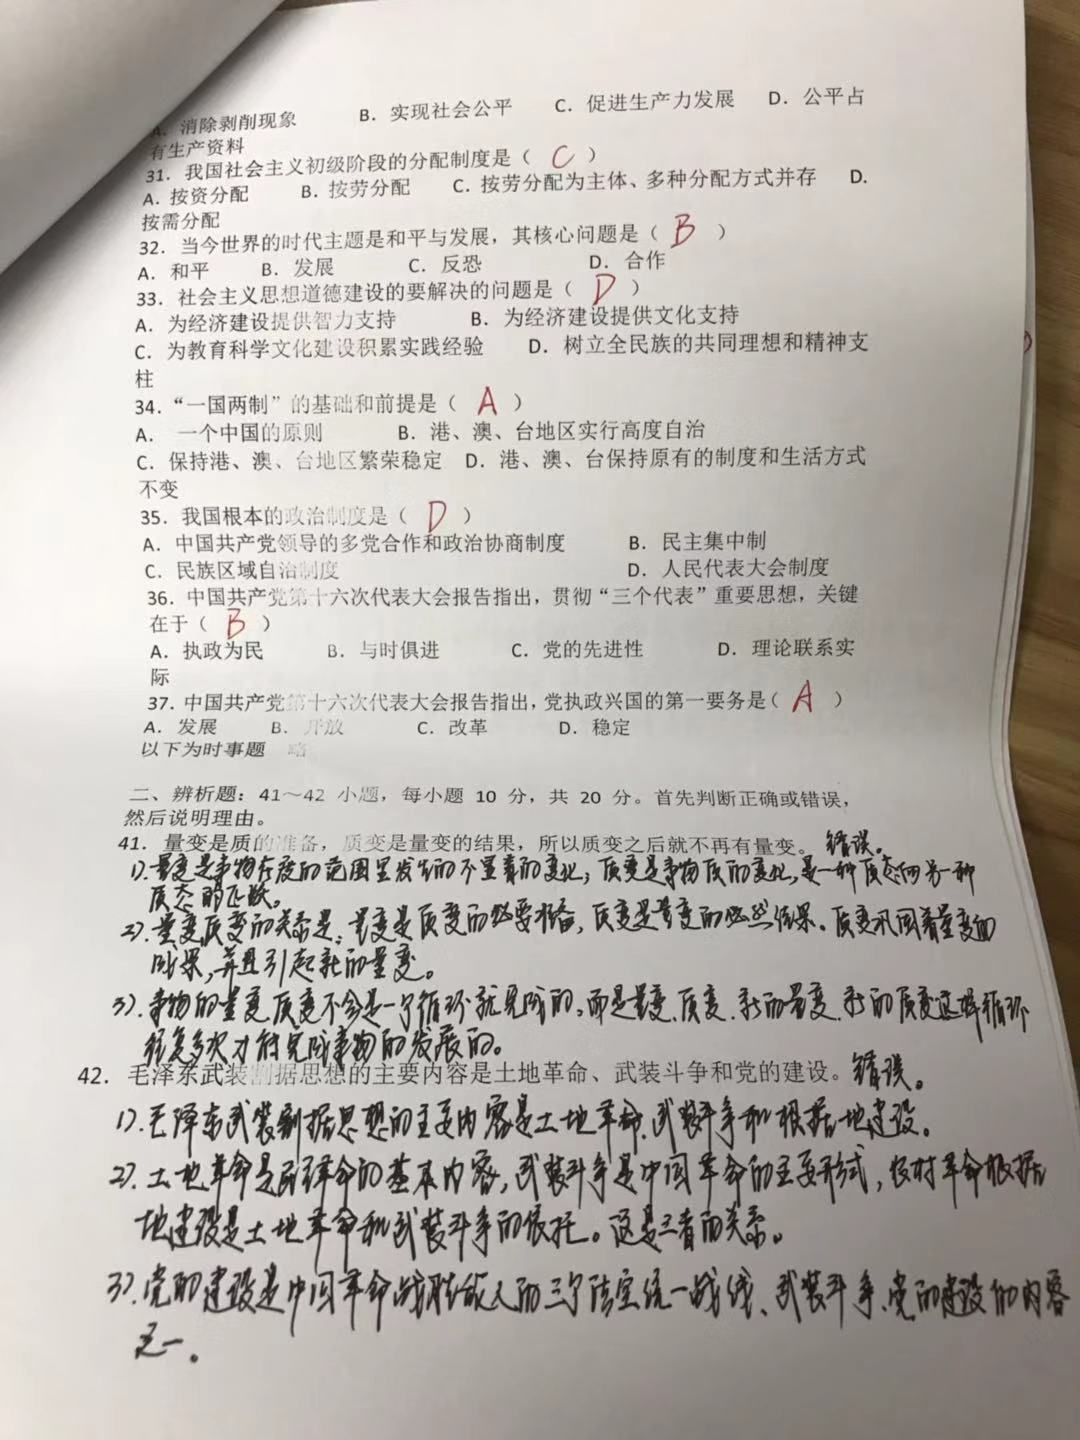 A. 消除剥削现象 B. 实现社会公平 C. 促进生产力发展 D. 公平占
有生产资料
31. 我国社会主义初级阶段的分配制度是（ C ）
A. 按资分配 B. 按劳分配 C. 按劳分配为主体、多种分配方式并存 D.
按需分配
32. 当今世界的时代主题是和平与发展，其核心问题是（ B ）
A. 和平 B. 发展 C. 反恐 D. 合作
33. 社会主义思想道德建设的要解决的问题是（ D ）
A. 为经济建设提供智力支持 B. 为经济建设提供文化支持
C. 为教育科学文化建设积累实践经验 D. 树立全民族的共同理想和精神支
柱
34. “一国两制”的基础和前提是（ A ）
A. 一个中国的原则 B. 港、澳、台地区实行高度自治
C. 保持港、澳、台地区繁荣稳定 D. 港、澳、台保持原有的制度和生活方式
不变
35. 我国根本的政治制度是（ D ）
A. 中国共产党领导的多党合作和政治协商制度 B. 民主集中制
C. 民族区域自治制度 D. 人民代表大会制度
36. 中国共产党第十六次代表大会报告指出，贯彻“三个代表”重要思想，关键
在于（ B ）
A. 执政为民 B. 与时俱进 C. 党的先进性 D. 理论联系实
际
37. 中国共产党第十六次代表大会报告指出，党执政兴国的第一要务是（ A ）
A. 发展 B. 开放 C. 改革 D. 稳定
以下为时事题 略
二、辨析题：41～42 小题，每小题 10 分，共 20 分。首先判断正确或错误，
然后说明理由。
41. 量变是质的准备，质变是量变的结果，所以质变之后就不再有量变。 错误。
1). 量变是事物在度的范围里发生的不显著的变化，质变是事物质的变化，是一种质态向另一种
质态的飞跃。
2). 量变质变的关系是：量变是质变的必要准备，质变是量变的必然结果。质变巩固着量变的
成果，并且引起新的量变。
3). 事物的量变、质变不会是一个循环就完成的，而是量变、质变、新的量变、新的质变这样循环
往复多次才能完成事物的发展的。
42. 毛泽东武装割据思想的主要内容是土地革命、武装斗争和党的建设。 错误。
1). 毛泽东武装割据思想的主要内容是土地革命、武装斗争和根据地建设。
2). 土地革命是民主革命的基本内容，武装斗争是中国革命的主要形式，农村革命根据
地建设是土地革命和武装斗争的依托。这是三者的关系。
3). 党的建设是中国革命战胜敌人的三个法宝统一战线、武装斗争、党的建设的内容
之一。